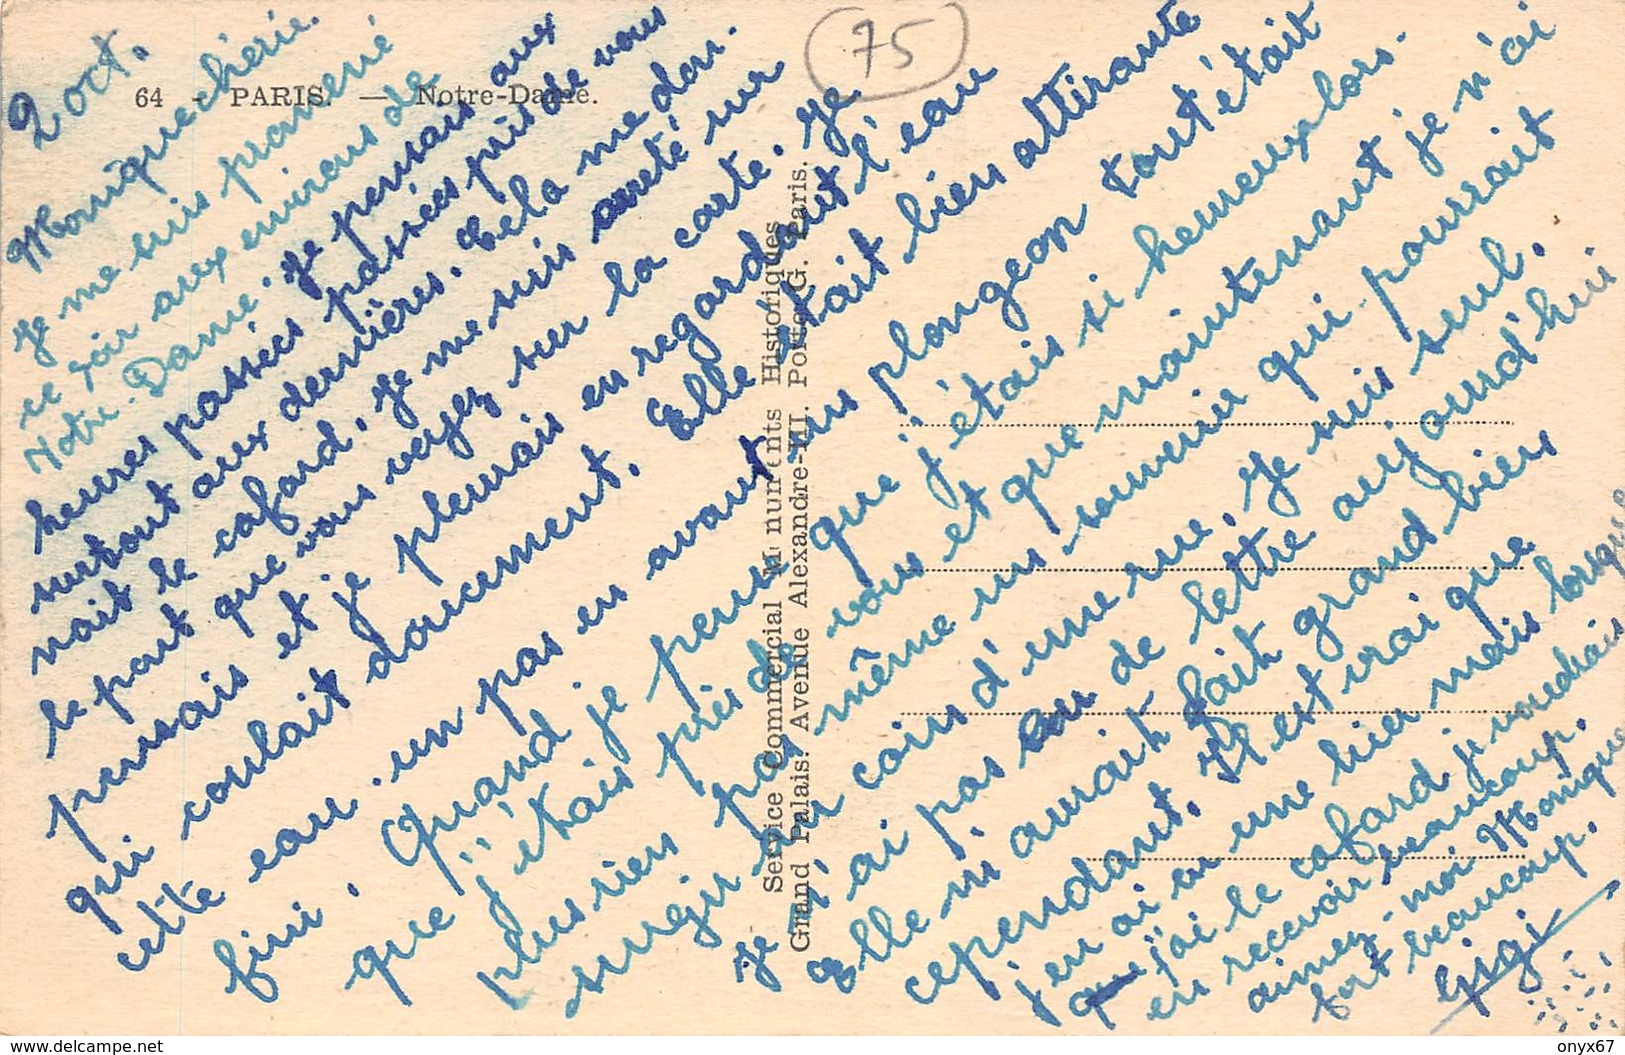 75
64 - PARIS. — Notre-Dame.
2 oct.
Monique chérie.
Je me suis promené
ce soir aux environs de
Notre-Dame. Je pensais aux
heures passées passées près de vous
surtout aux dernières. Cela me don-
nait le cafard. Je me suis arreté sur
le pont que vous voyez sur la carte. Je
pensais et je pleurais en regardant l'eau
qui coulait doucement. Elle était bien attirante
cette eau. un pas en avant, un plongeon tout était
fini. Quand je pense que j'étais si heureux lors-
que j'étais près de vous et que maintenant je n'ai
plus rien pas même un souvenir qui pourrait
surgir au coin d'une rue. Je suis seul.
Je n'ai pas eu de lettre aujourd'hui
Elle m'aurait fait grand bien
cependant. Il est vrai que
j'en ai eu une hier mais lorsque
que j'ai le cafard je voudrais
en recevoir beaucoup.
aimez-moi Monique
fort beaucoup.
Gigi
Service Commercial Monuments Historiques
Grand Palais. Avenue Alexandre-III. Porte G. Paris.
onyx67